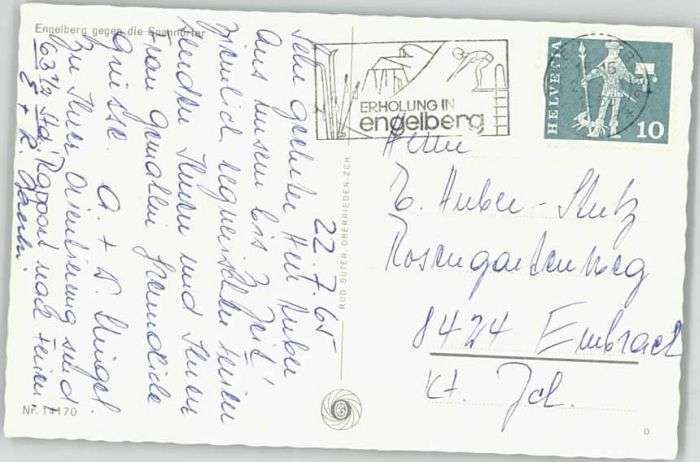 Engelberg gegen die Spannörter
22.7.65
Sehr geehrter Herr Huber
Aus unsern bis z. Zeit
ziemlich regnerischen Ferien
senden Ihnen und Ihrer
Frau Gemahlin freundliche
Grüsse. A. + K.
Zu Ihrer Orientierung sind
63 1/2 Std. Rapport nach Ferien
Nr. 14170
RUD. SUTER, OBERRIEDEN-ZCH
ERHOLUNG IN
engelberg
HELVETIA
10
Herrn
Huber-Stutz
Rosengartenweg
8424 Embrach
Kt. Zch.